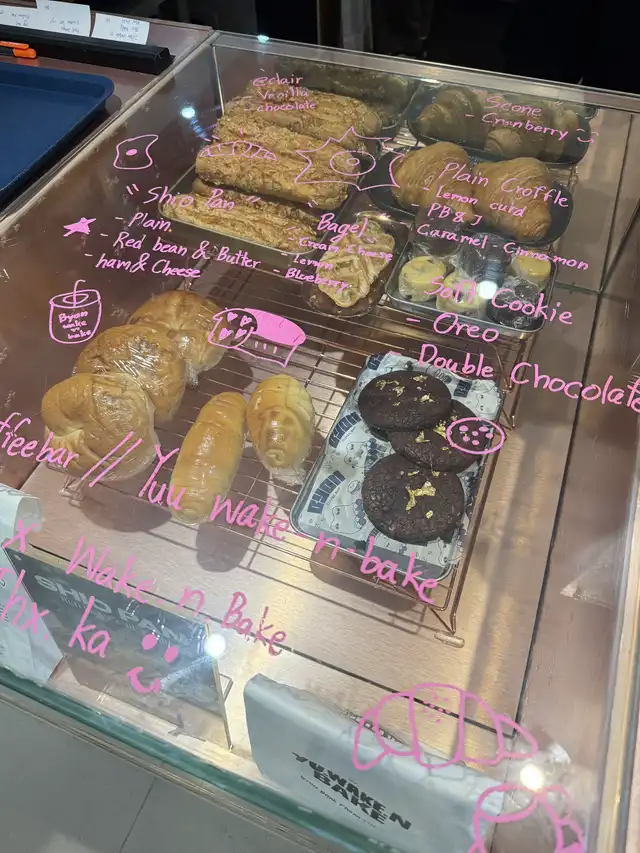 eclair
Vanilla
Chocolate
Scone
- Cranberry
"Shio Pan"
- Plain
- Red bean & Butter
- ham & Cheese
Bagel
- Cream Cheese
- Lemon
- Blueberry
Plain Croffle
- Lemon curd
- PB & J
Caramel - Cinnamon
Soft Cookie
- Oreo
- Double Chocolate
wake
bake
ffeebar // Yuu wake-n-bake
x Wake n Bake
Thx. ka
SHIO PAN
YUWAKE N
BAKE